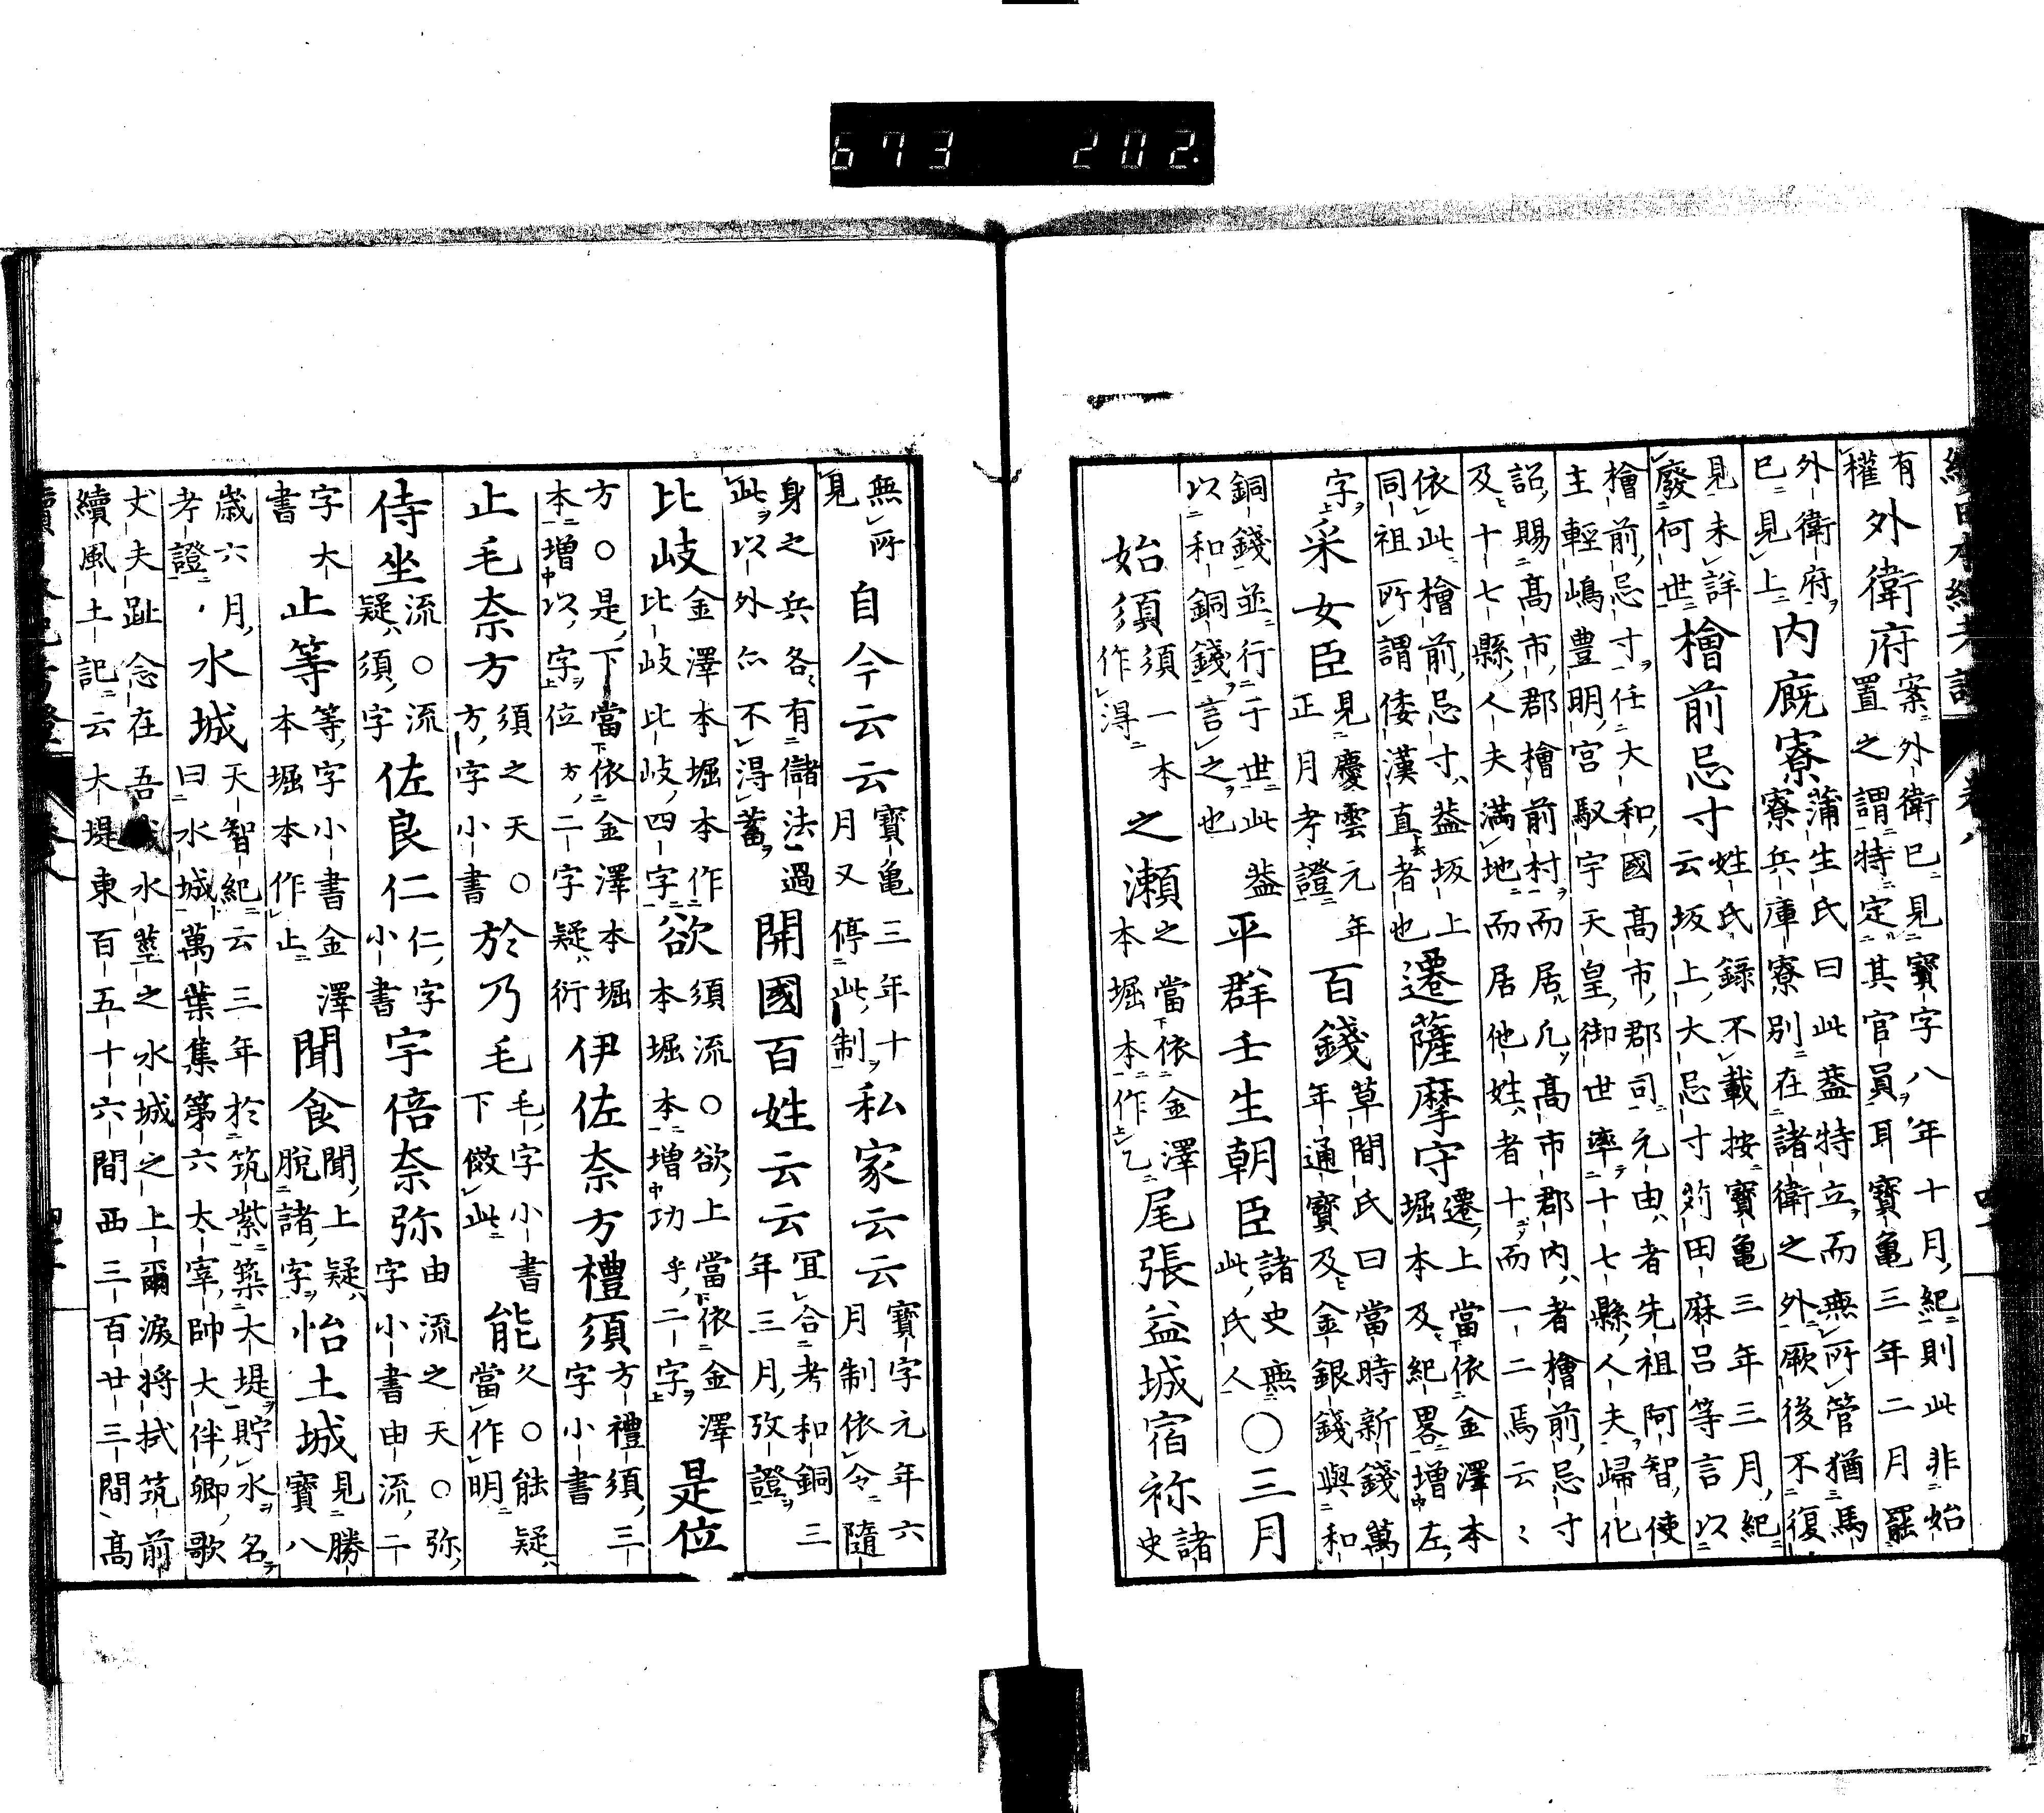 673 202.
有權外衛府案外衛已見寶字八年十月紀則此非始置之謂特定其官員耳寶龜三年二月罷
外衛府已見上内厩寮蒲生氏曰此蓋特立而無所管猶馬寮兵庫寮別在諸衛之外厥後不復
見未詳廢何世檜前忌寸姓氏錄不載按寶龜三年三月紀云坂上大忌寸苅田麻呂等言以
檜前忌寸任大和國高市郡司元由者先祖阿智使主輕嶋豊明宮馭宇天皇御世率十七縣人夫歸化
詔賜高市郡檜前村而居凡高市郡内者檜前忌寸及十七縣人夫滿地而居他姓者十而一二焉云〻
依此檜前忌寸蓋坂上同祖所謂倭漢直者也遷薩摩守遷上當依金澤本堀本及紀畧增左
字采女臣見慶雲元年正月考證百錢草間氏曰當時新錢萬年通寶及金銀錢與和
銅錢並行于世此蓋以和銅錢言之也平群壬生朝臣諸史無此氏人〇三月
始須須一本作淂之瀬之當依金澤本堀本作乙尾張益城宿祢諸史
無所見自今云云寶龜三年十月又停此制私家云云寶字元年六月制依令隨
身之兵各有儲法過此以外亦不淂蓄開國百姓云云宜合考和銅三年三月攷證
比岐金澤本堀本作比岐比岐四字欲須流〇欲上當依金澤本堀本增功乎二字是位
方〇是下當依金澤本增以字位方二字疑衍伊佐奈方禮須方禮須三字小書
止毛奈方須之天〇方字小書於乃毛毛字小書下倣此能久〇能疑當作明
侍坐流〇流疑須字佐良仁仁字小書宇倍奈弥由流之天〇弥字小書由流二
字大書止等等字小書金澤本堀本作止聞食聞上疑脱諸字怡土城見勝寶八
歳六月考證水城天智紀云三年於筑紫築大堤貯水名曰水城萬葉集第六太宰帥大伴卿歌
丈夫趾念在吾哉水莖之水城之上爾淚将拭筑前續風土記云大堤東百五十六間西三百廿三間高